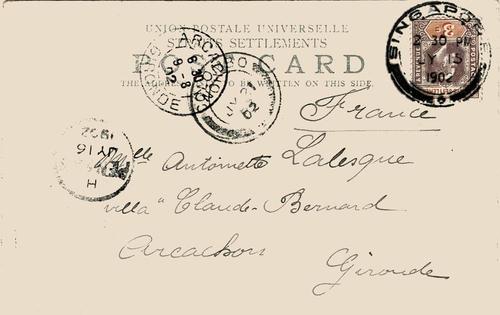 UNION POSTALE UNIVERSELLE
STRAITS SETTLEMENTS
POST CARD
THE ADDRESS ONLY TO BE WRITTEN ON THIS SIDE.
SINGAPORE
30 PM
JY 15
190
ARCACHON
GIRONDE
8-8
02
JY
02
France
Melle Antoinette Lalesque
villa "Claude-Bernard
Arcachon
Gironde
H
JY 16